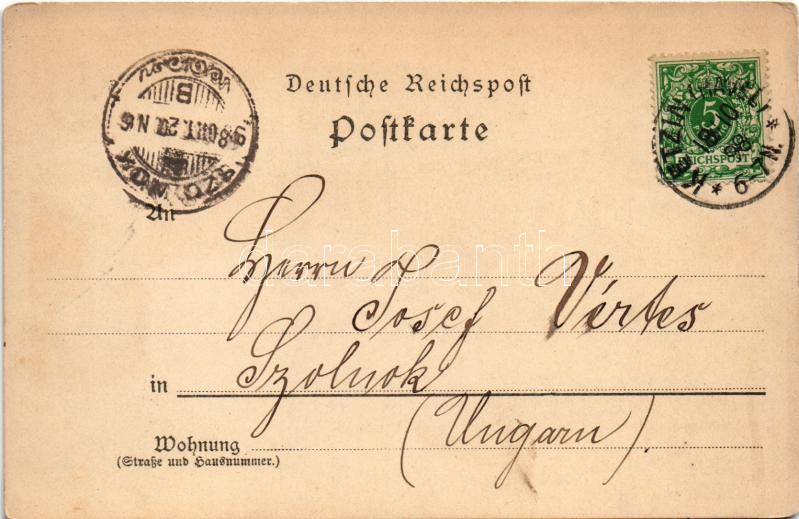 Deutsche Reichspost
Postkarte
SZOLNOK
98 OKT. 20 N 6
B
KETZIN (HAVEL)
18 10 98
* 6-7 N. *
5
REICHSPOST
An
Herrn
Josef Vértes
in Szolnok
(Ungarn)
Wohnung
(Straße und Hausnummer.)
darabanth.com